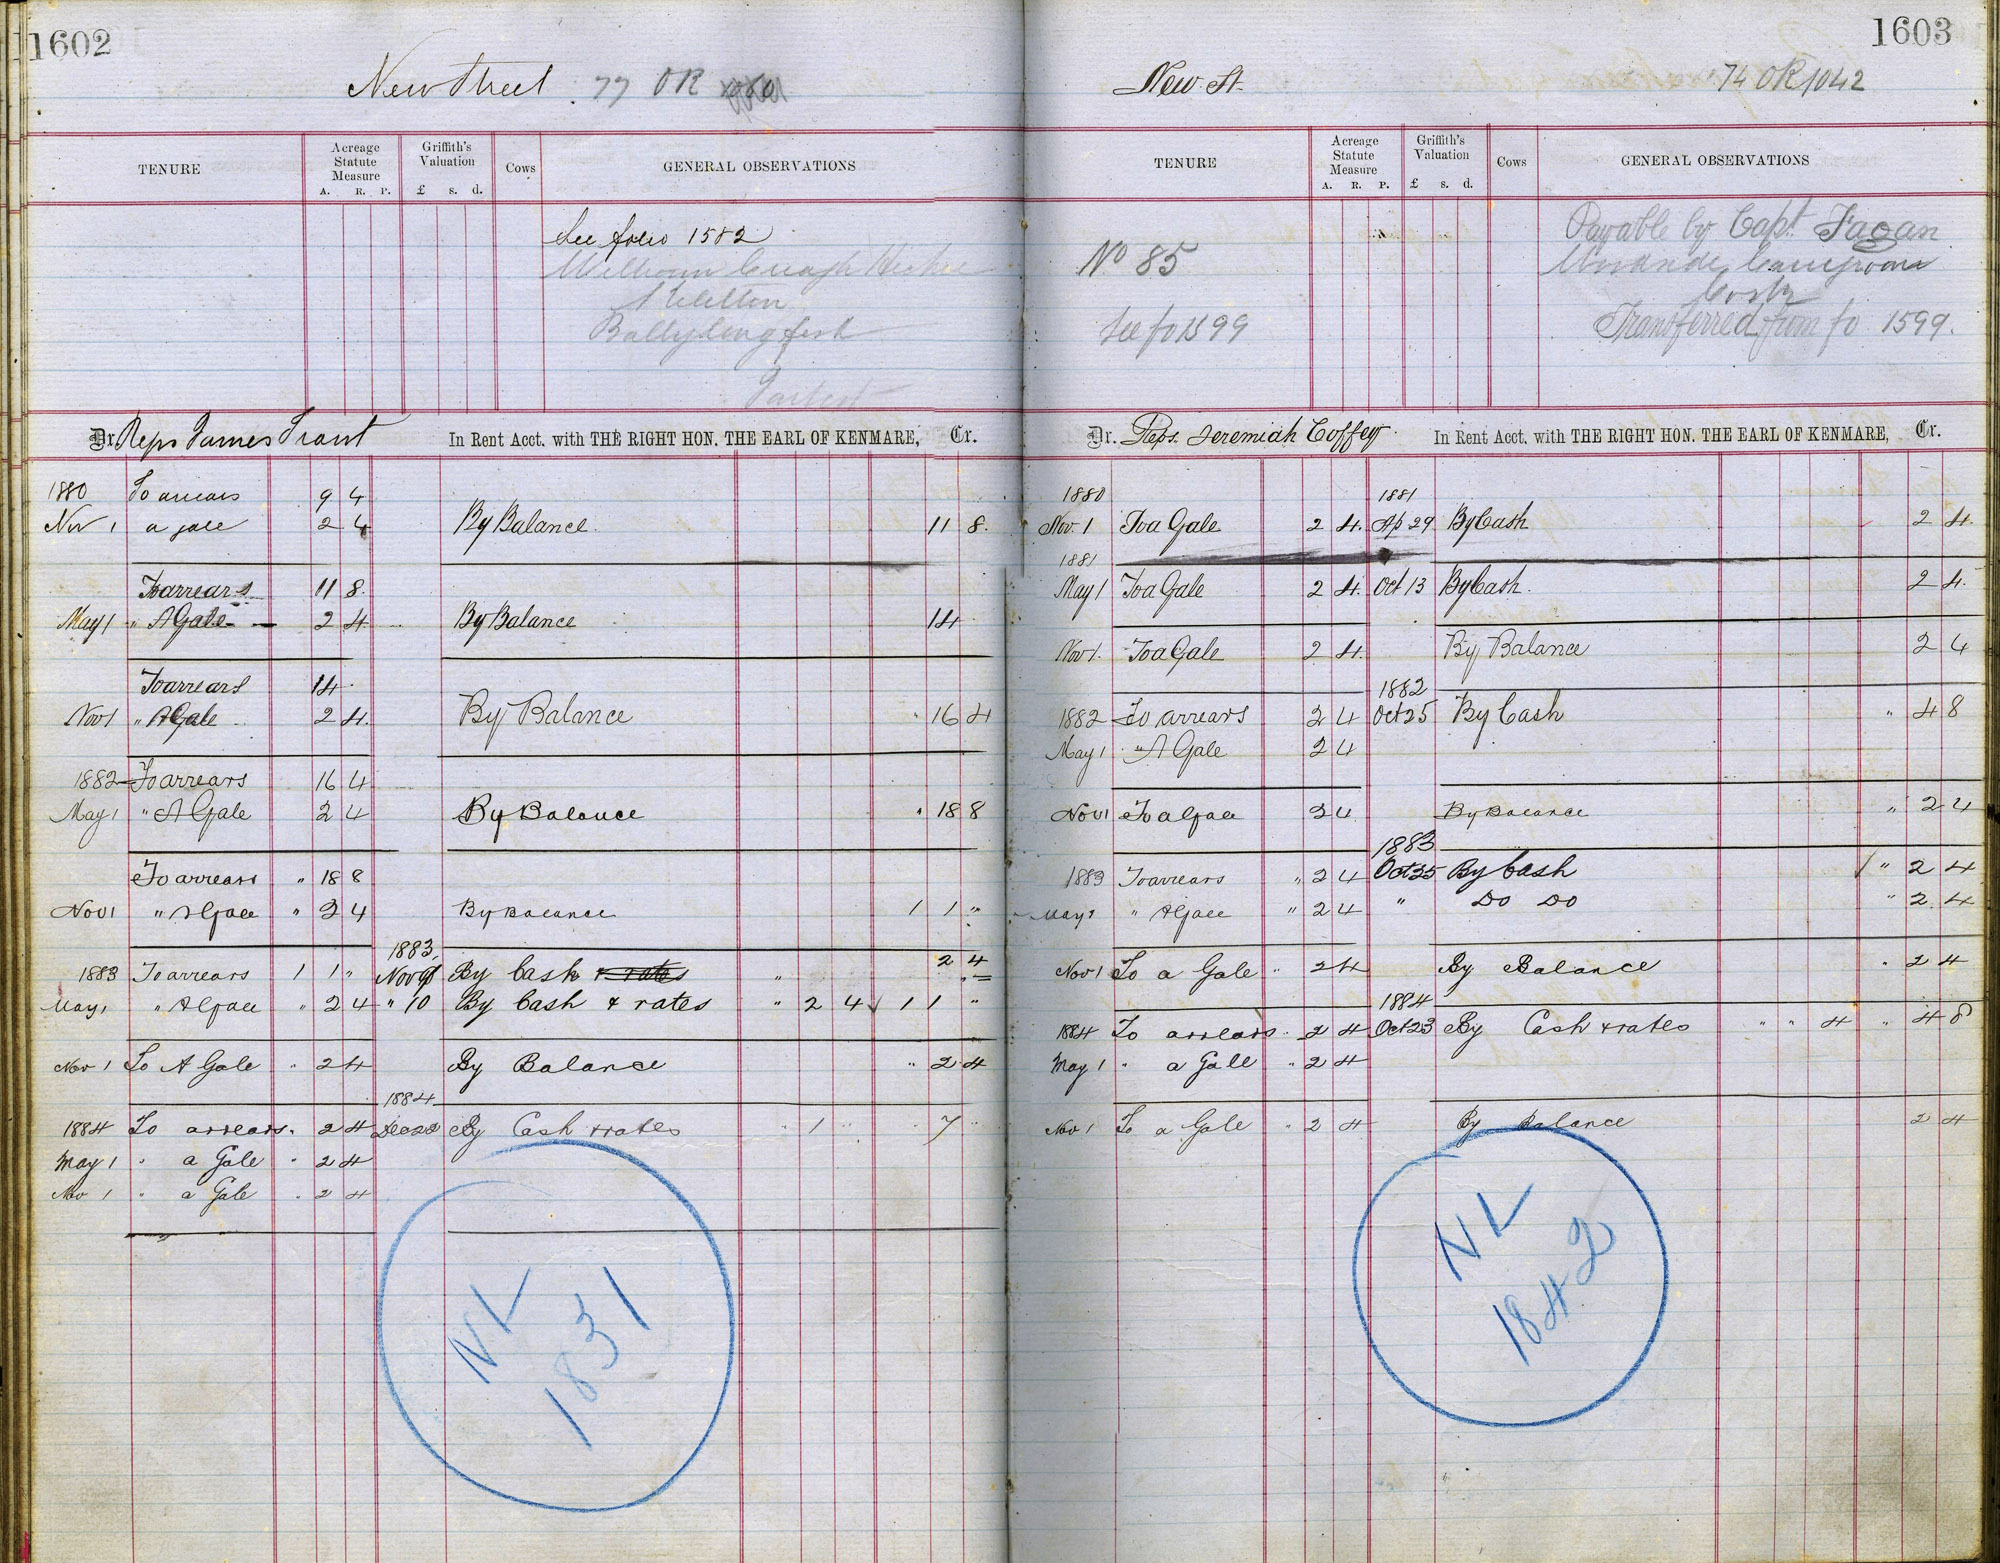 1602
New Street 77 OR
TENURE
Acreage Statute Measure
A. R. P.
Griffith's Valuation
£ s. d.
Cows
GENERAL OBSERVATIONS
See folio 1582
Dr. Reps James Trant In Rent Acct. with THE RIGHT HON. THE EARL OF KENMARE, Cr.
1880 To arrears 9 4
Nov 1 a gale 2 4 By Balance 11 8
To arrears 11 8
May 1 " A Gale 2 4 By Balance 14
To arrears 14
Nov 1 " A Gale 2 4 By Balance " 16 4
1882 To arrears 16 4
May 1 " A Gale 2 4 By Balance " 18 8
To arrears " 18 8
Nov 1 " A Gale " 2 4 By Balance 1 1 "
1883
1883 To arrears 1 1 " Nov By Cash & rates " 2 4
May 1 " A Gale " 2 4 " 10 By Cash & rates " 2 4 1 1 "
Nov 1 To A Gale " 2 4 By Balance " 2 4
1884
1884 To arrears " 2 4 Dec 22 By Cash & rates " 1 " " 7 "
May 1 " a Gale " 2 4
Nov 1 " a Gale " 2 4
NL
1831
1603
New St. 74 OR 1042
TENURE
Acreage Statute Measure
A. R. P.
Griffith's Valuation
£ s. d.
Cows
GENERAL OBSERVATIONS
No 85
See fo 1599
Payable by Capt. Fagan
Cork
Transferred from fo 1599.
Dr. Reps. Jeremiah Coffey In Rent Acct. with THE RIGHT HON. THE EARL OF KENMARE, Cr.
1880 1881
Nov. 1 To a Gale 2 4 Ap 29 By Cash 2 4
1881
May 1 To a Gale 2 4 Oct 13 By Cash 2 4
Nov 1 To a Gale 2 4 By Balance 2 4
1882
1882 To arrears 2 4 Oct 25 By Cash " 4 8
May 1 " A Gale 2 4
Nov 1 To a Gale 2 4 By Balance " 2 4
1883
1883 To arrears " 2 4 Oct 25 By Cash " 2 4
May 1 " A Gale " 2 4 " Do Do " 2 4
Nov 1 To a Gale " 2 4 By Balance " 2 4
1884
1884 To arrears " 2 4 Oct 23 By Cash & rates " " 4 " 4 8
May 1 " a Gale " 2 4
Nov 1 To a Gale " 2 4 By Balance 2 4
NL
1842